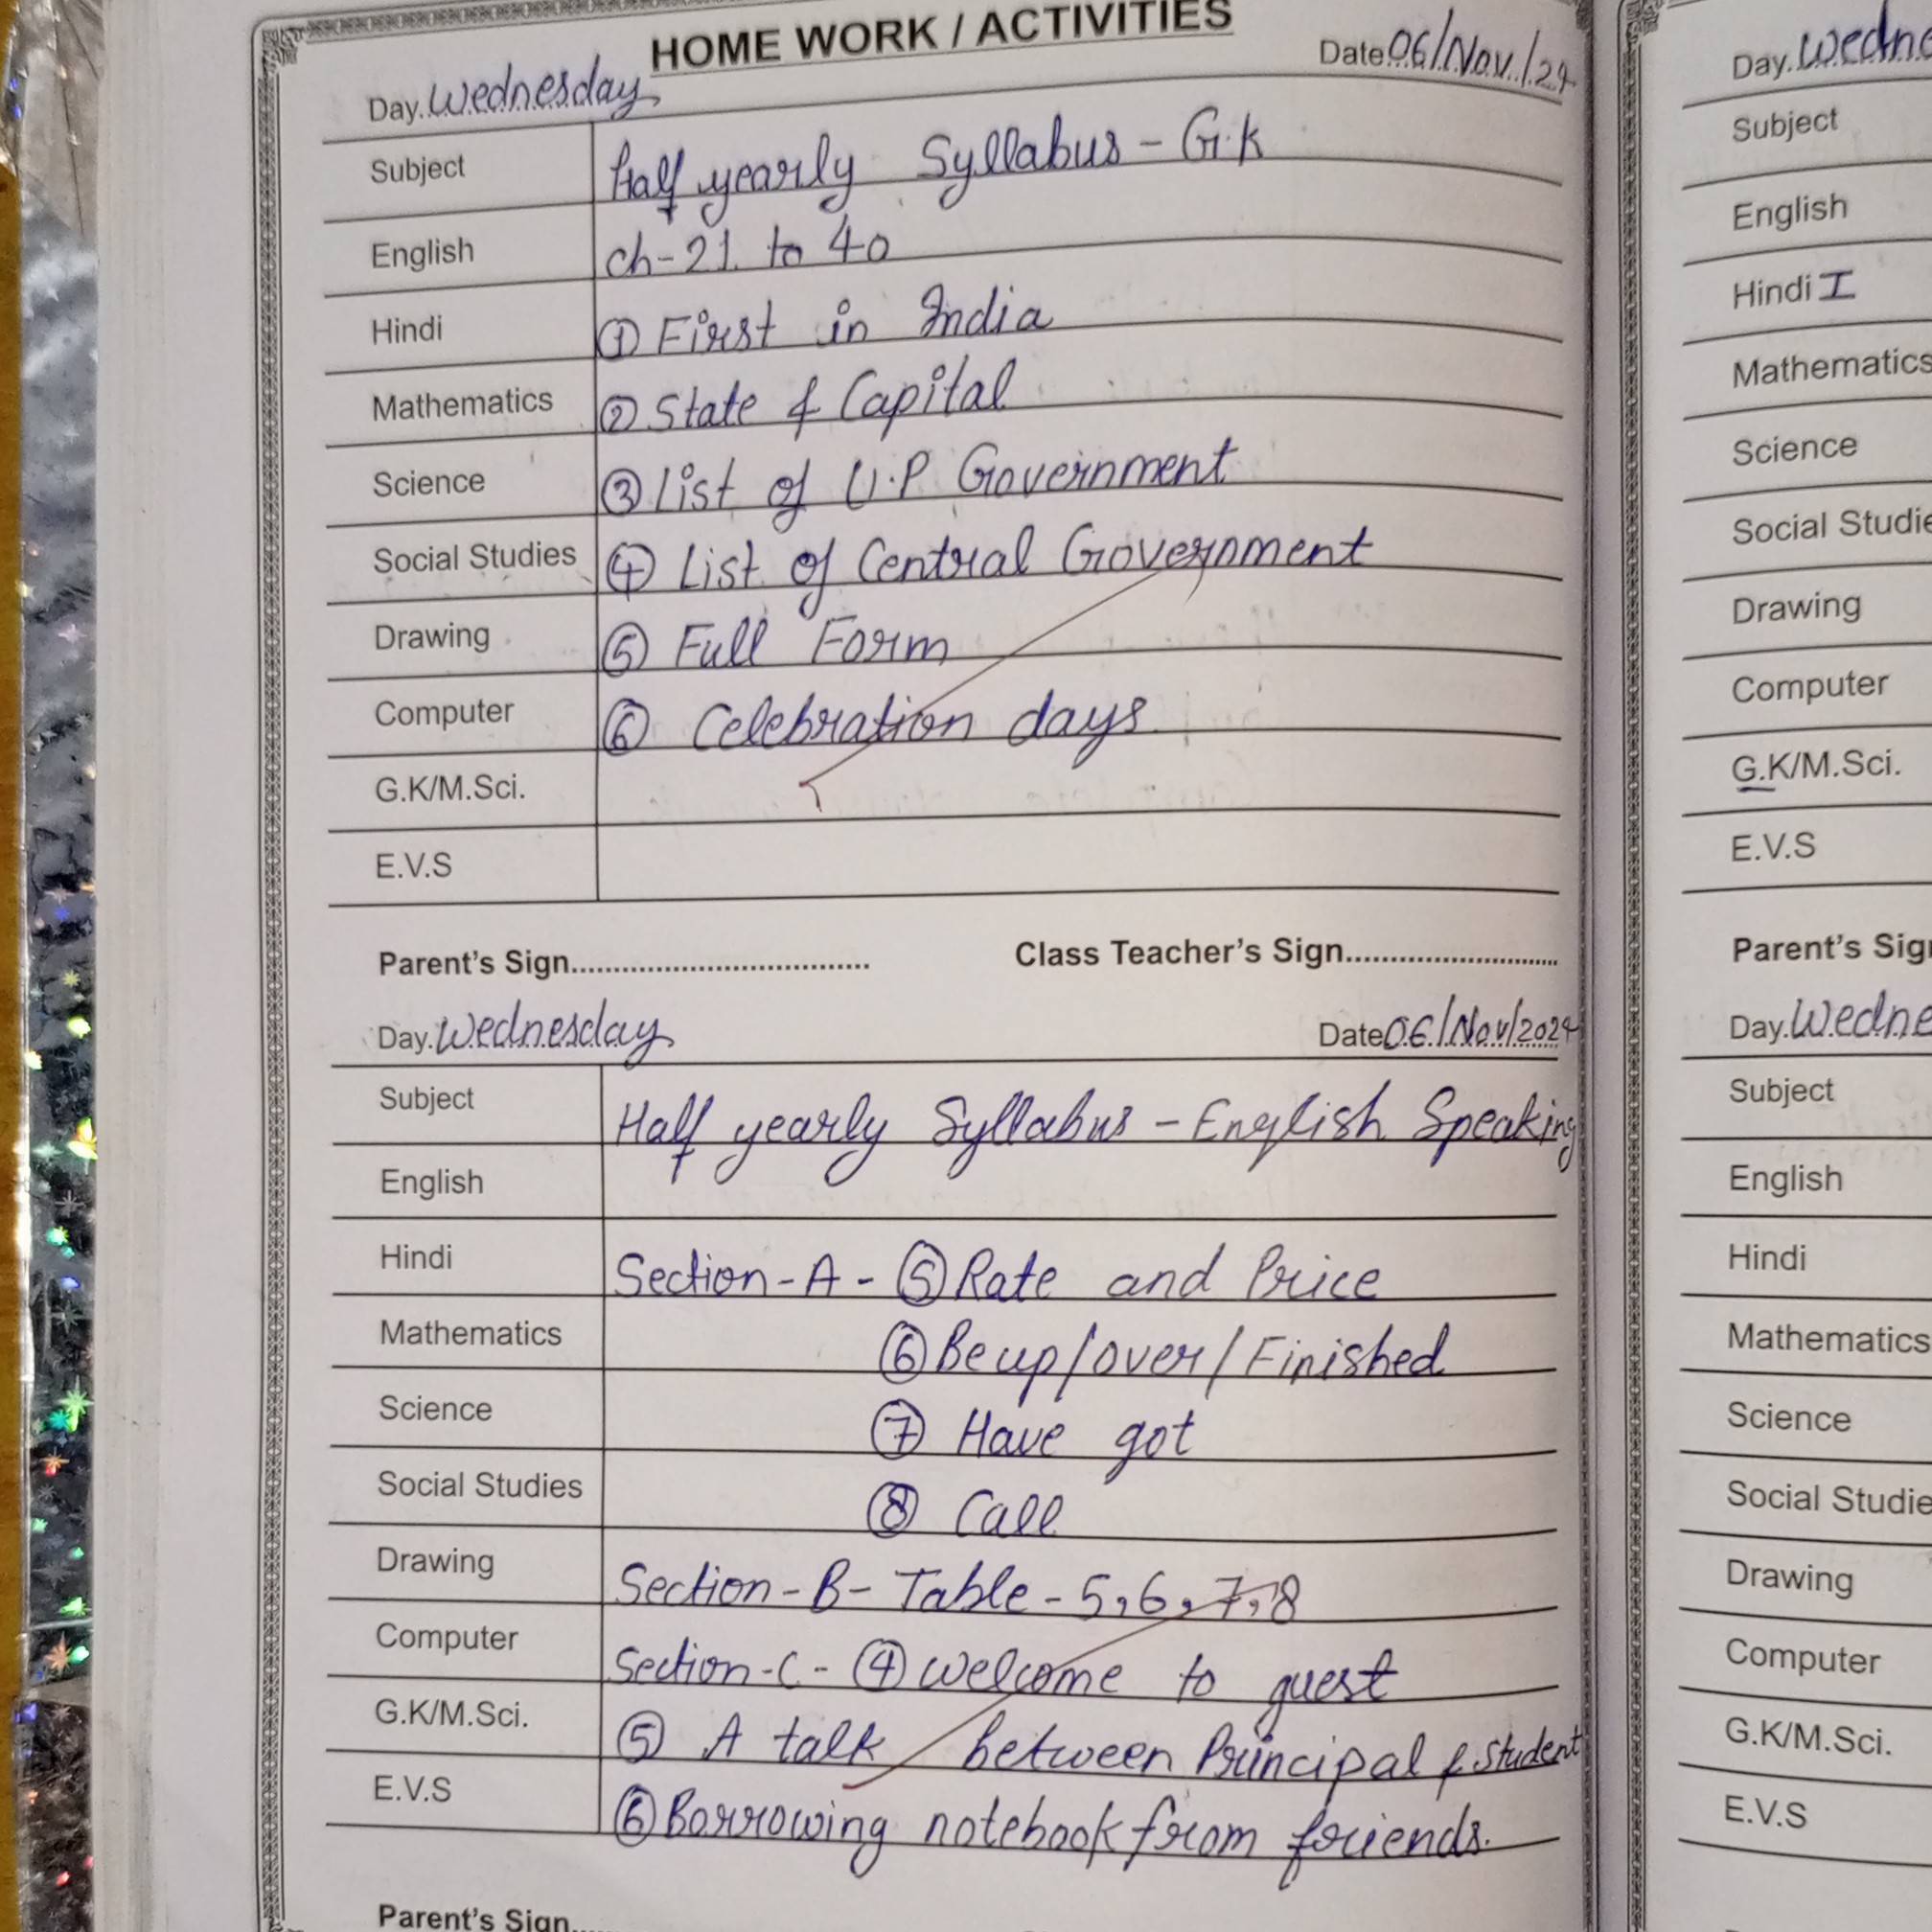 HOME WORK / ACTIVITIES
Day. Wednesday Date 06/Nov/24
Subject Half yearly Syllabus - G.K
English ch-21 to 40
Hindi ① First in India
Mathematics ② State & Capital
Science ③ List of U.P Government
Social Studies ④ List of Central Government
Drawing ⑤ Full Form
Computer ⑥ Celebration days
G.K/M.Sci.
E.V.S
Parent's Sign.................................. Class Teacher's Sign..........................
Day. Wednesday Date 06/Nov/2024
Subject Half yearly Syllabus - English Speaking
English
Hindi Section-A- ⑤ Rate and Price
Mathematics ⑥ Be up/over/Finished
Science ⑦ Have got
Social Studies ⑧ Call
Drawing Section-B- Table - 5,6,7,8
Computer Section-C- ④ Welcome to guest
G.K/M.Sci. ⑤ A talk between Principal & student
E.V.S ⑥ Borrowing notebook from friends.
Parent's Sign
Day.
Subject
English
Hindi I
Mathematics
Science
Social
Drawing
Computer
G.K/M.Sci.
E.V.S
Parent's
Day.
Subject
English
Hindi
Mathematics
Science
Social
Drawing
Computer
G.K/M.Sci.
E.V.S